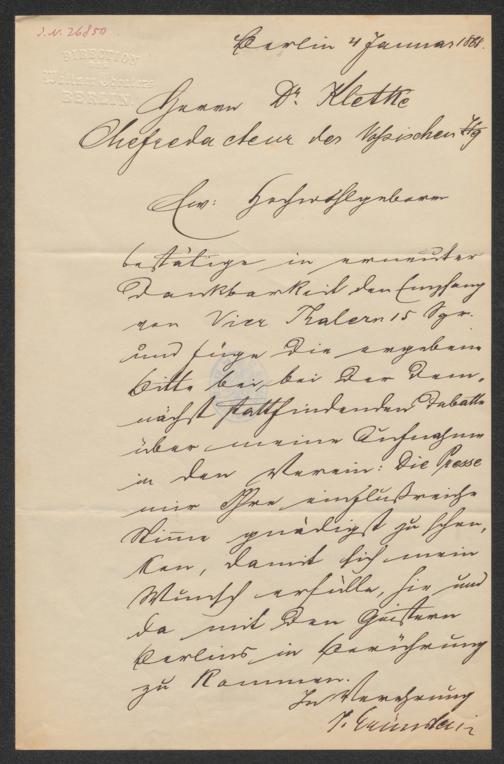 J.N. 26850
DIRECTION
BERLIN
Berlin 4 Januar 1881.
Herrn Dr Kletke
Chefredacteur der Vossischen Ztg
Ew: Hochwohlgeboren
bestätige in erneuter
Dankbarkeit den Empfang
von Vier Thalern 15 Sgr.
und füge die ergebene
Bitte bei, bei der dem-
nächst stattfindenden Debatte
über meine Aufnahme
in den Verein: Die Presse
mir Ihre einflußreiche
Stimme gnädigst zu schen-
ken, damit sich mein
Wunsch erfülle, hie und
da mit den Geistern
Berlins in Berührung
zu kommen.
In Verehrung